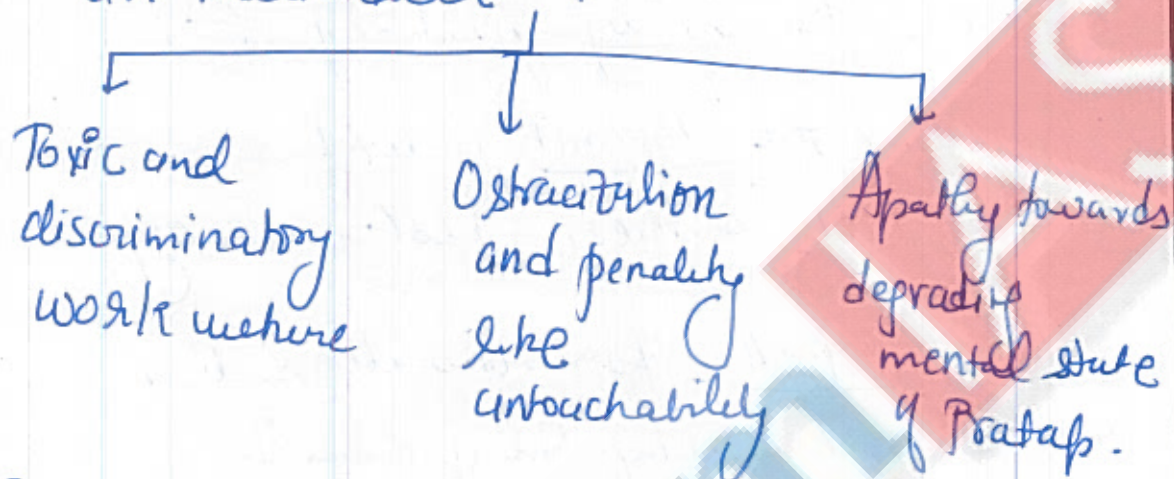 Toxic and
discriminatory
work culture
Ostracization
and penalty
like
untouchability
Apathy towards
degrading
mental state
of Pratap.